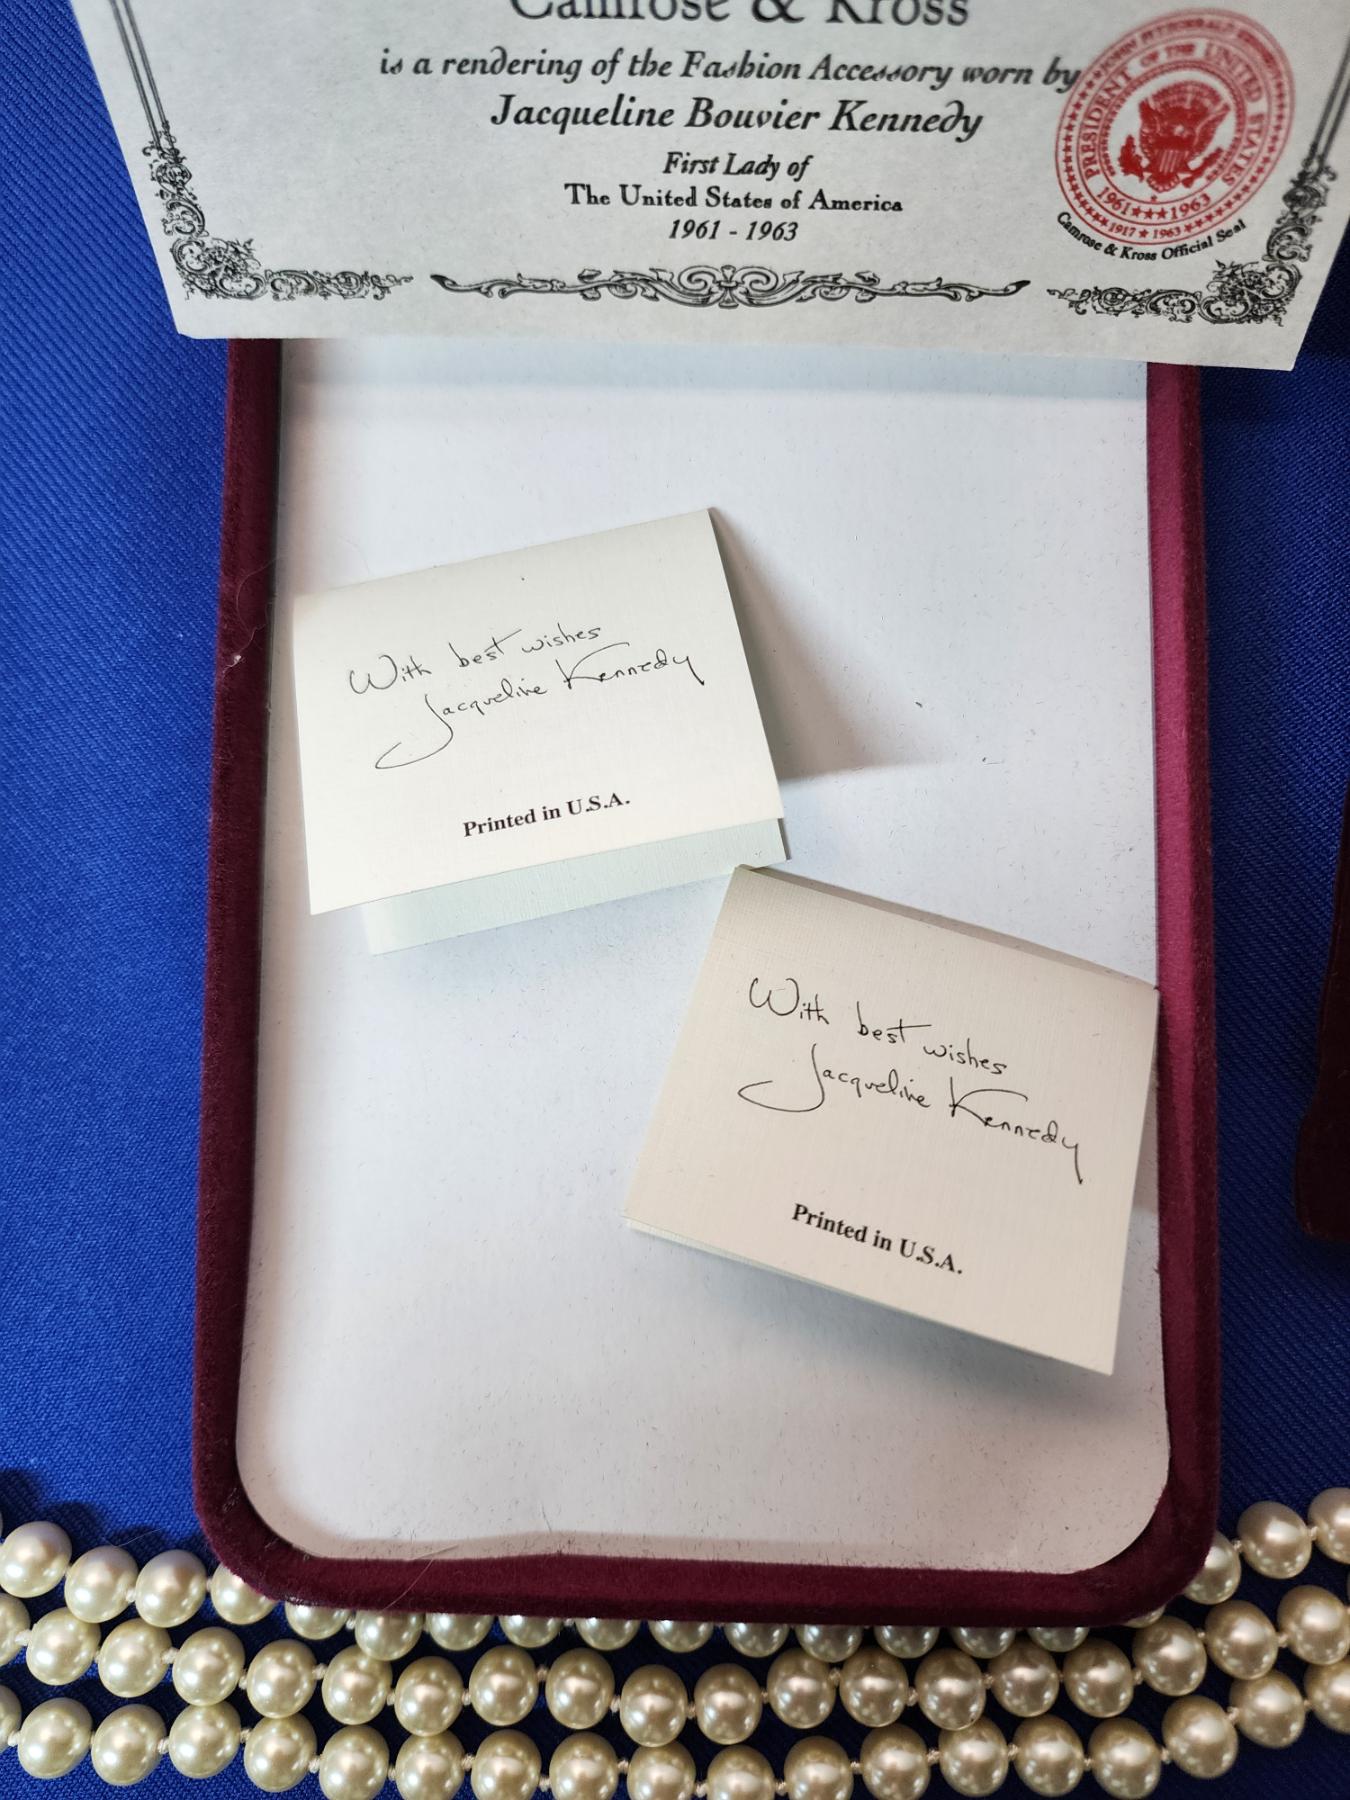 Camrose & Kross
is a rendering of the Fashion Accessory worn by
Jacqueline Bouvier Kennedy
First Lady of
The United States of America
1961 - 1963
JOHN FITZGERALD KENNEDY
PRESIDENT OF THE UNITED STATES
1961★★★1963
1917 ★ 1963
Camrose & Kross Official Seal
With best wishes
Jacqueline Kennedy
Printed in U.S.A.
With best wishes
Jacqueline Kennedy
Printed in U.S.A.